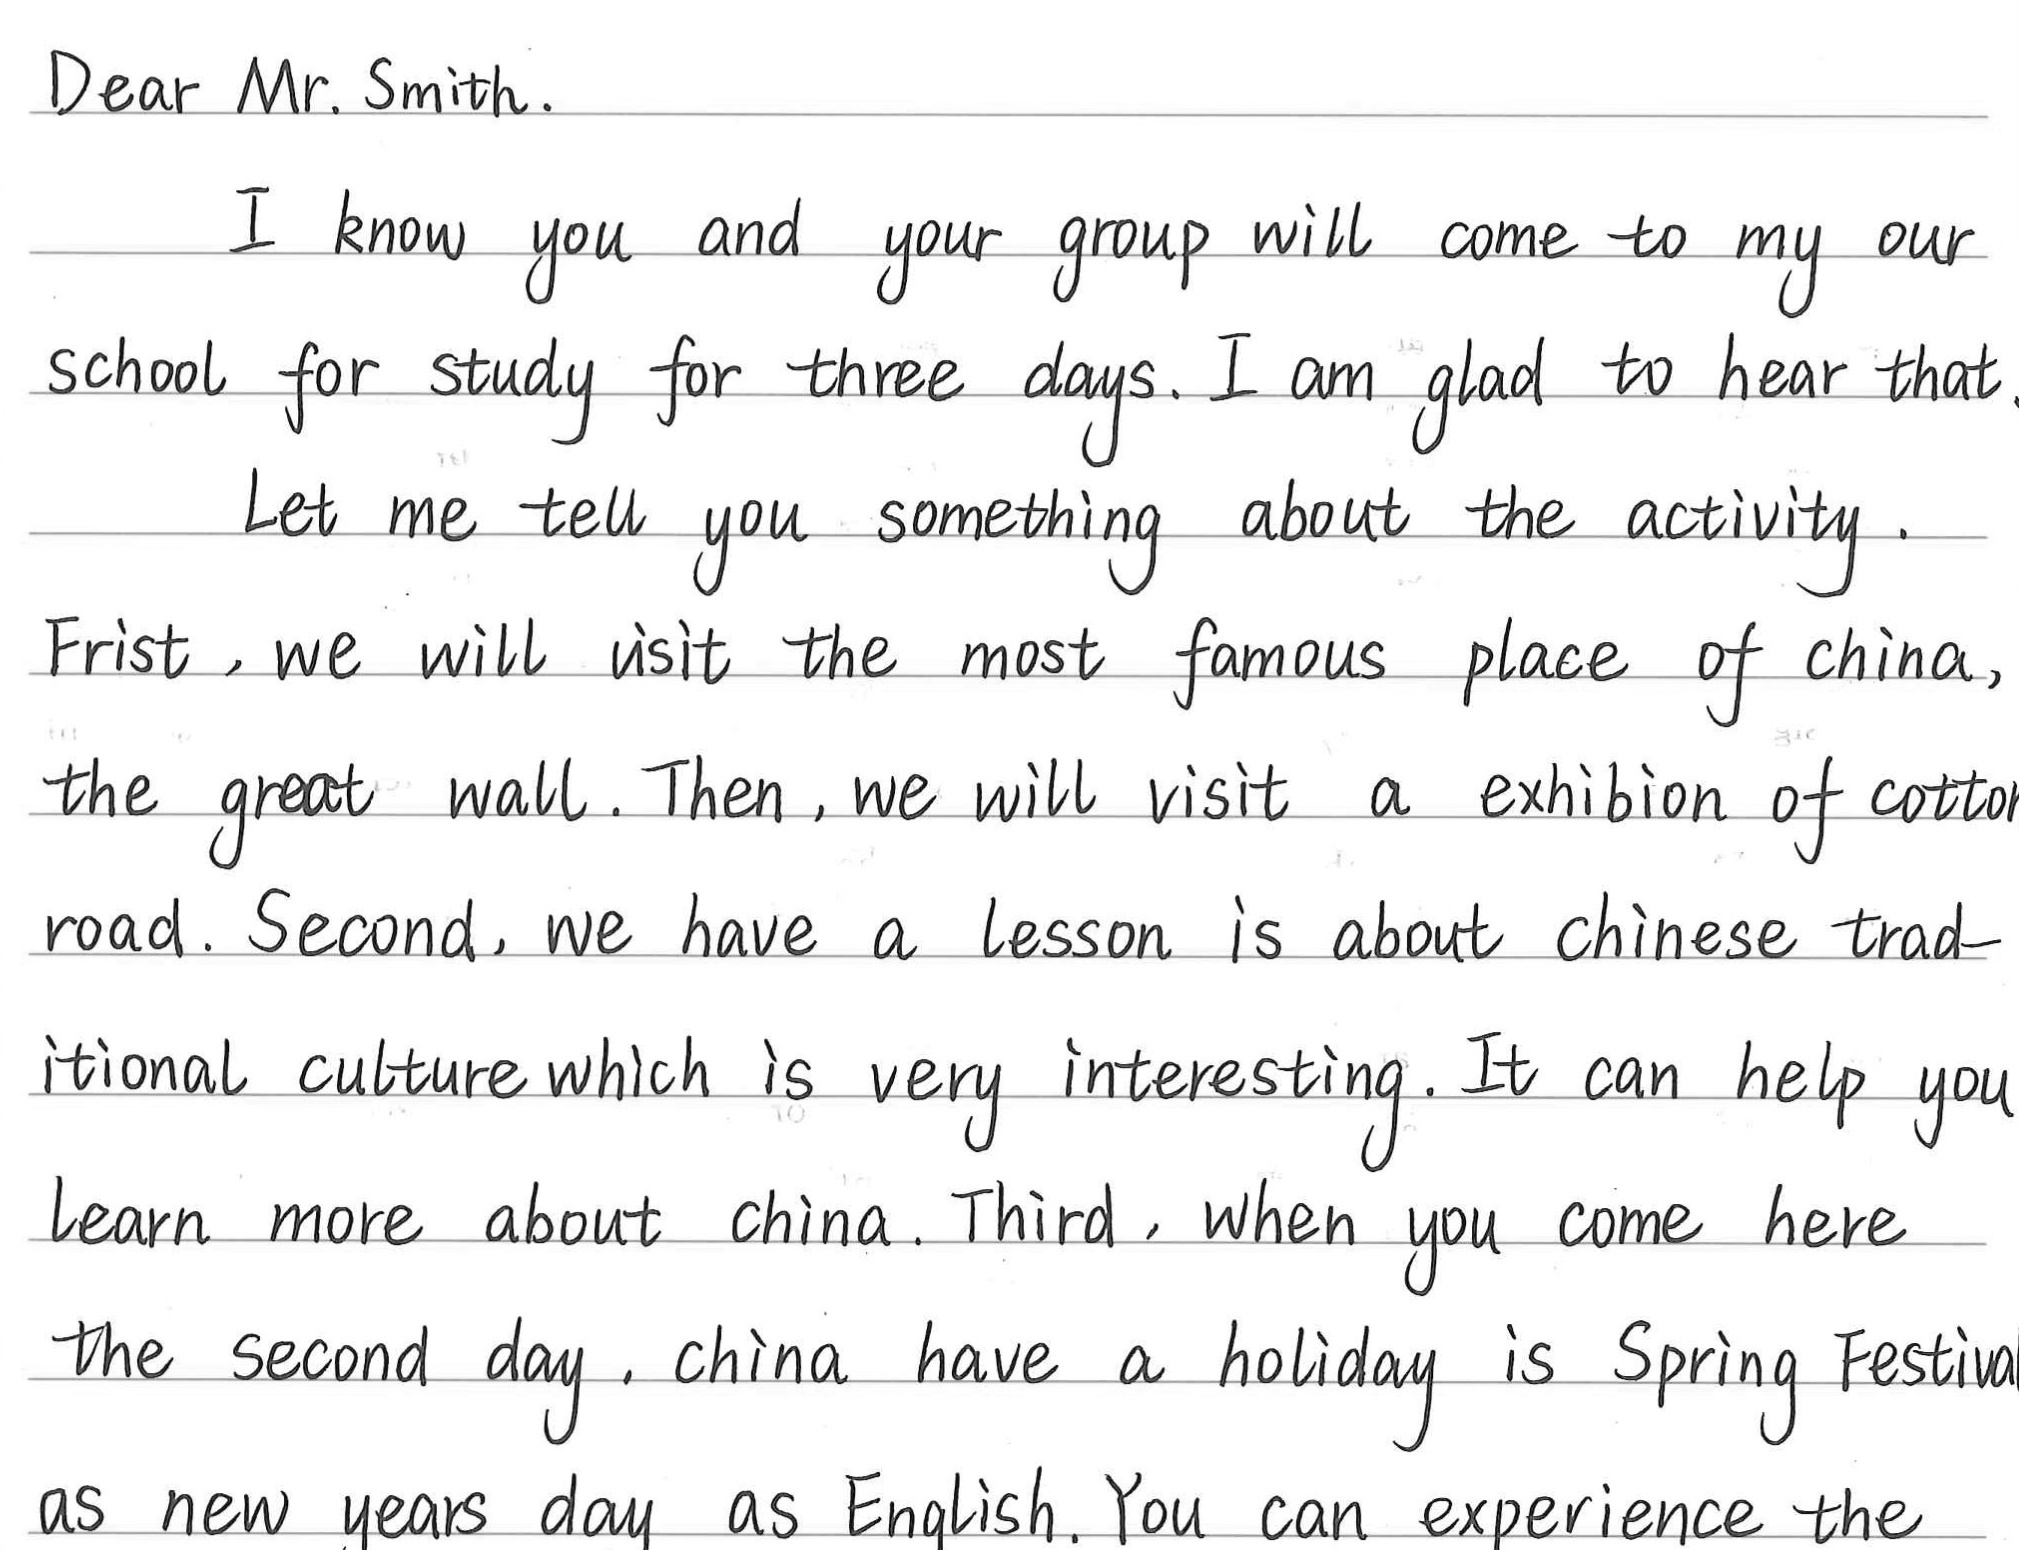 Dear Mr. Smith.
I know you and your group will come to my our
school for study for three days. I am glad to hear that.
Let me tell you something about the activity.
Frist, we will visit the most famous place of china,
the great wall. Then, we will visit a exhibion of cotton
road. Second, we have a lesson is about chinese trad-
itional culture which is very interesting. It can help you
learn more about china. Third, when you come here
the second day, china have a holiday is Spring Festival
as new years day as English. You can experience the